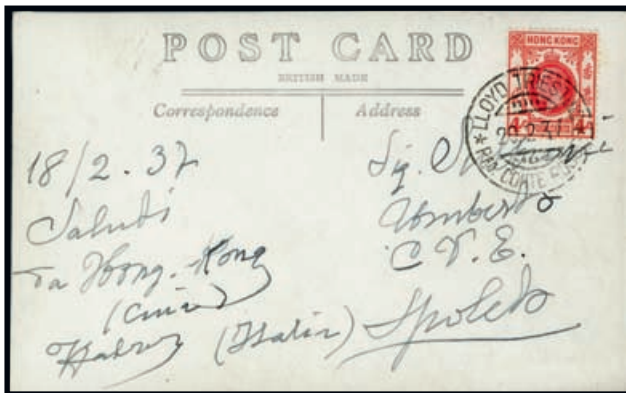 POST CARD
BRITISH MADE
Correspondence
Address
HONG KONG
4
LLOYD TRIESTINO
20.2.37
18/2.37
Saluti
da Hong-Kong
(Cina)
Sig.
Umberto
C.V.E.
(Italia) Spoleto